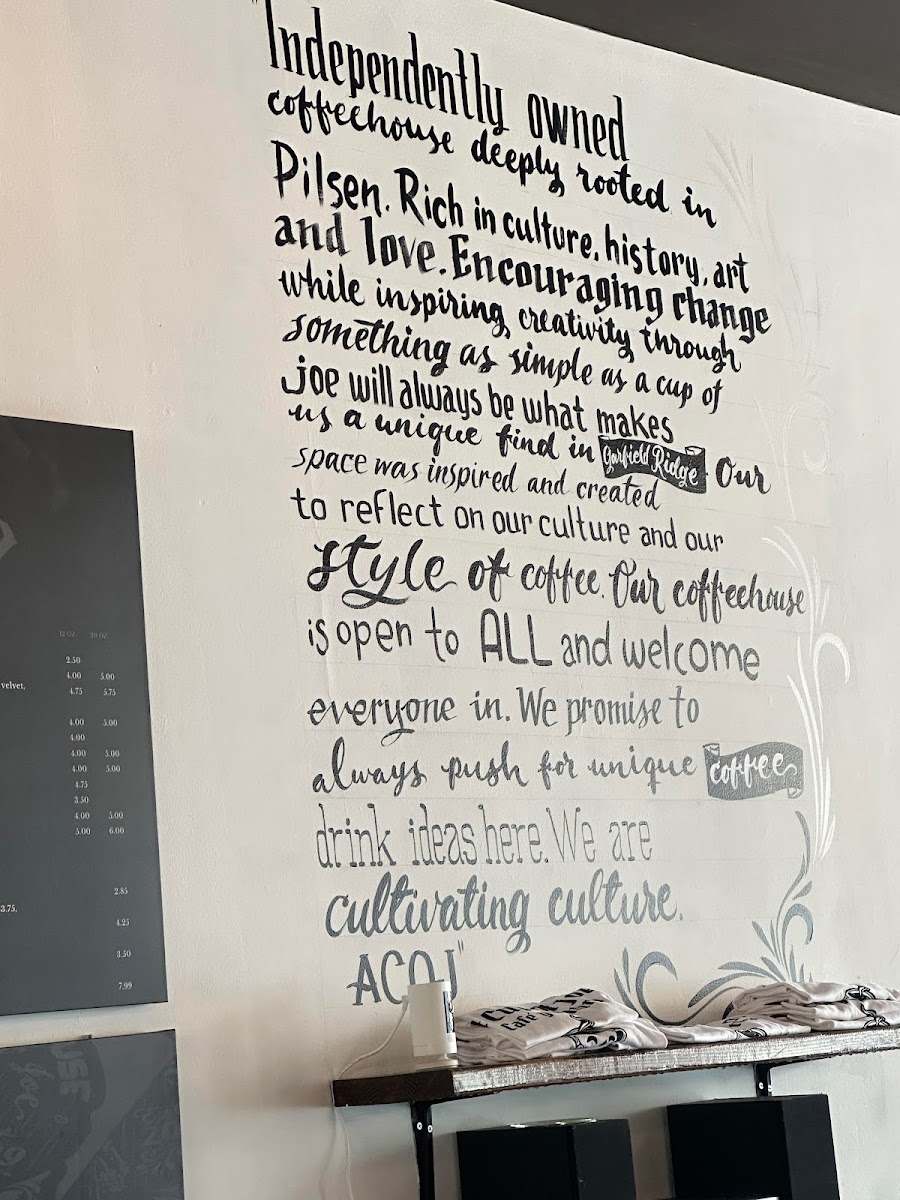 "Independently owned
coffeehouse deeply rooted in
Pilsen. Rich in culture, history, art
and love. Encouraging change
while inspiring creativity through
something as simple as a cup of
joe will always be what makes
us a unique find in Garfield Ridge. Our
space was inspired and created
to reflect on our culture and our
style of coffee. Our coffeehouse
is open to ALL and welcome
everyone in. We promise to
always push for unique coffee
drink ideas here. We are
cultivating culture.
ACOJ"
12 OZ 20 OZ
2.50
4.00 5.00
velvet, 4.75 5.75
4.00 5.00
4.00
4.00 5.00
4.00 5.00
4.75
3.50
4.00 5.00
5.00 6.00
2.85
3.75,
4.25
3.50
7.99
Café